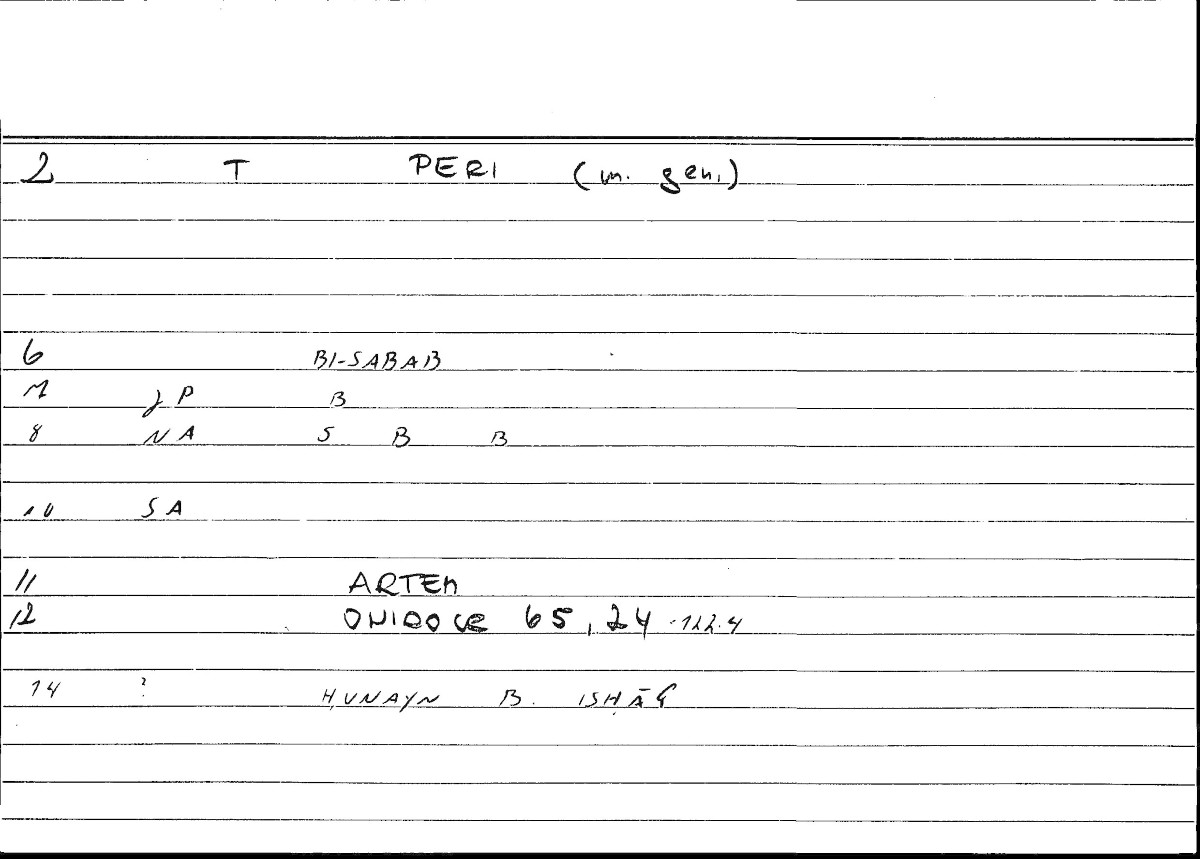 2 T PERI (m. gen.)
6 BI-SABAB
7 JP B
8 NA S B B
10 SA
11 ARTEM
12 ONIROCR 65,24 - 122.4
14 ? ḤUNAYN B. ISḤĀQ